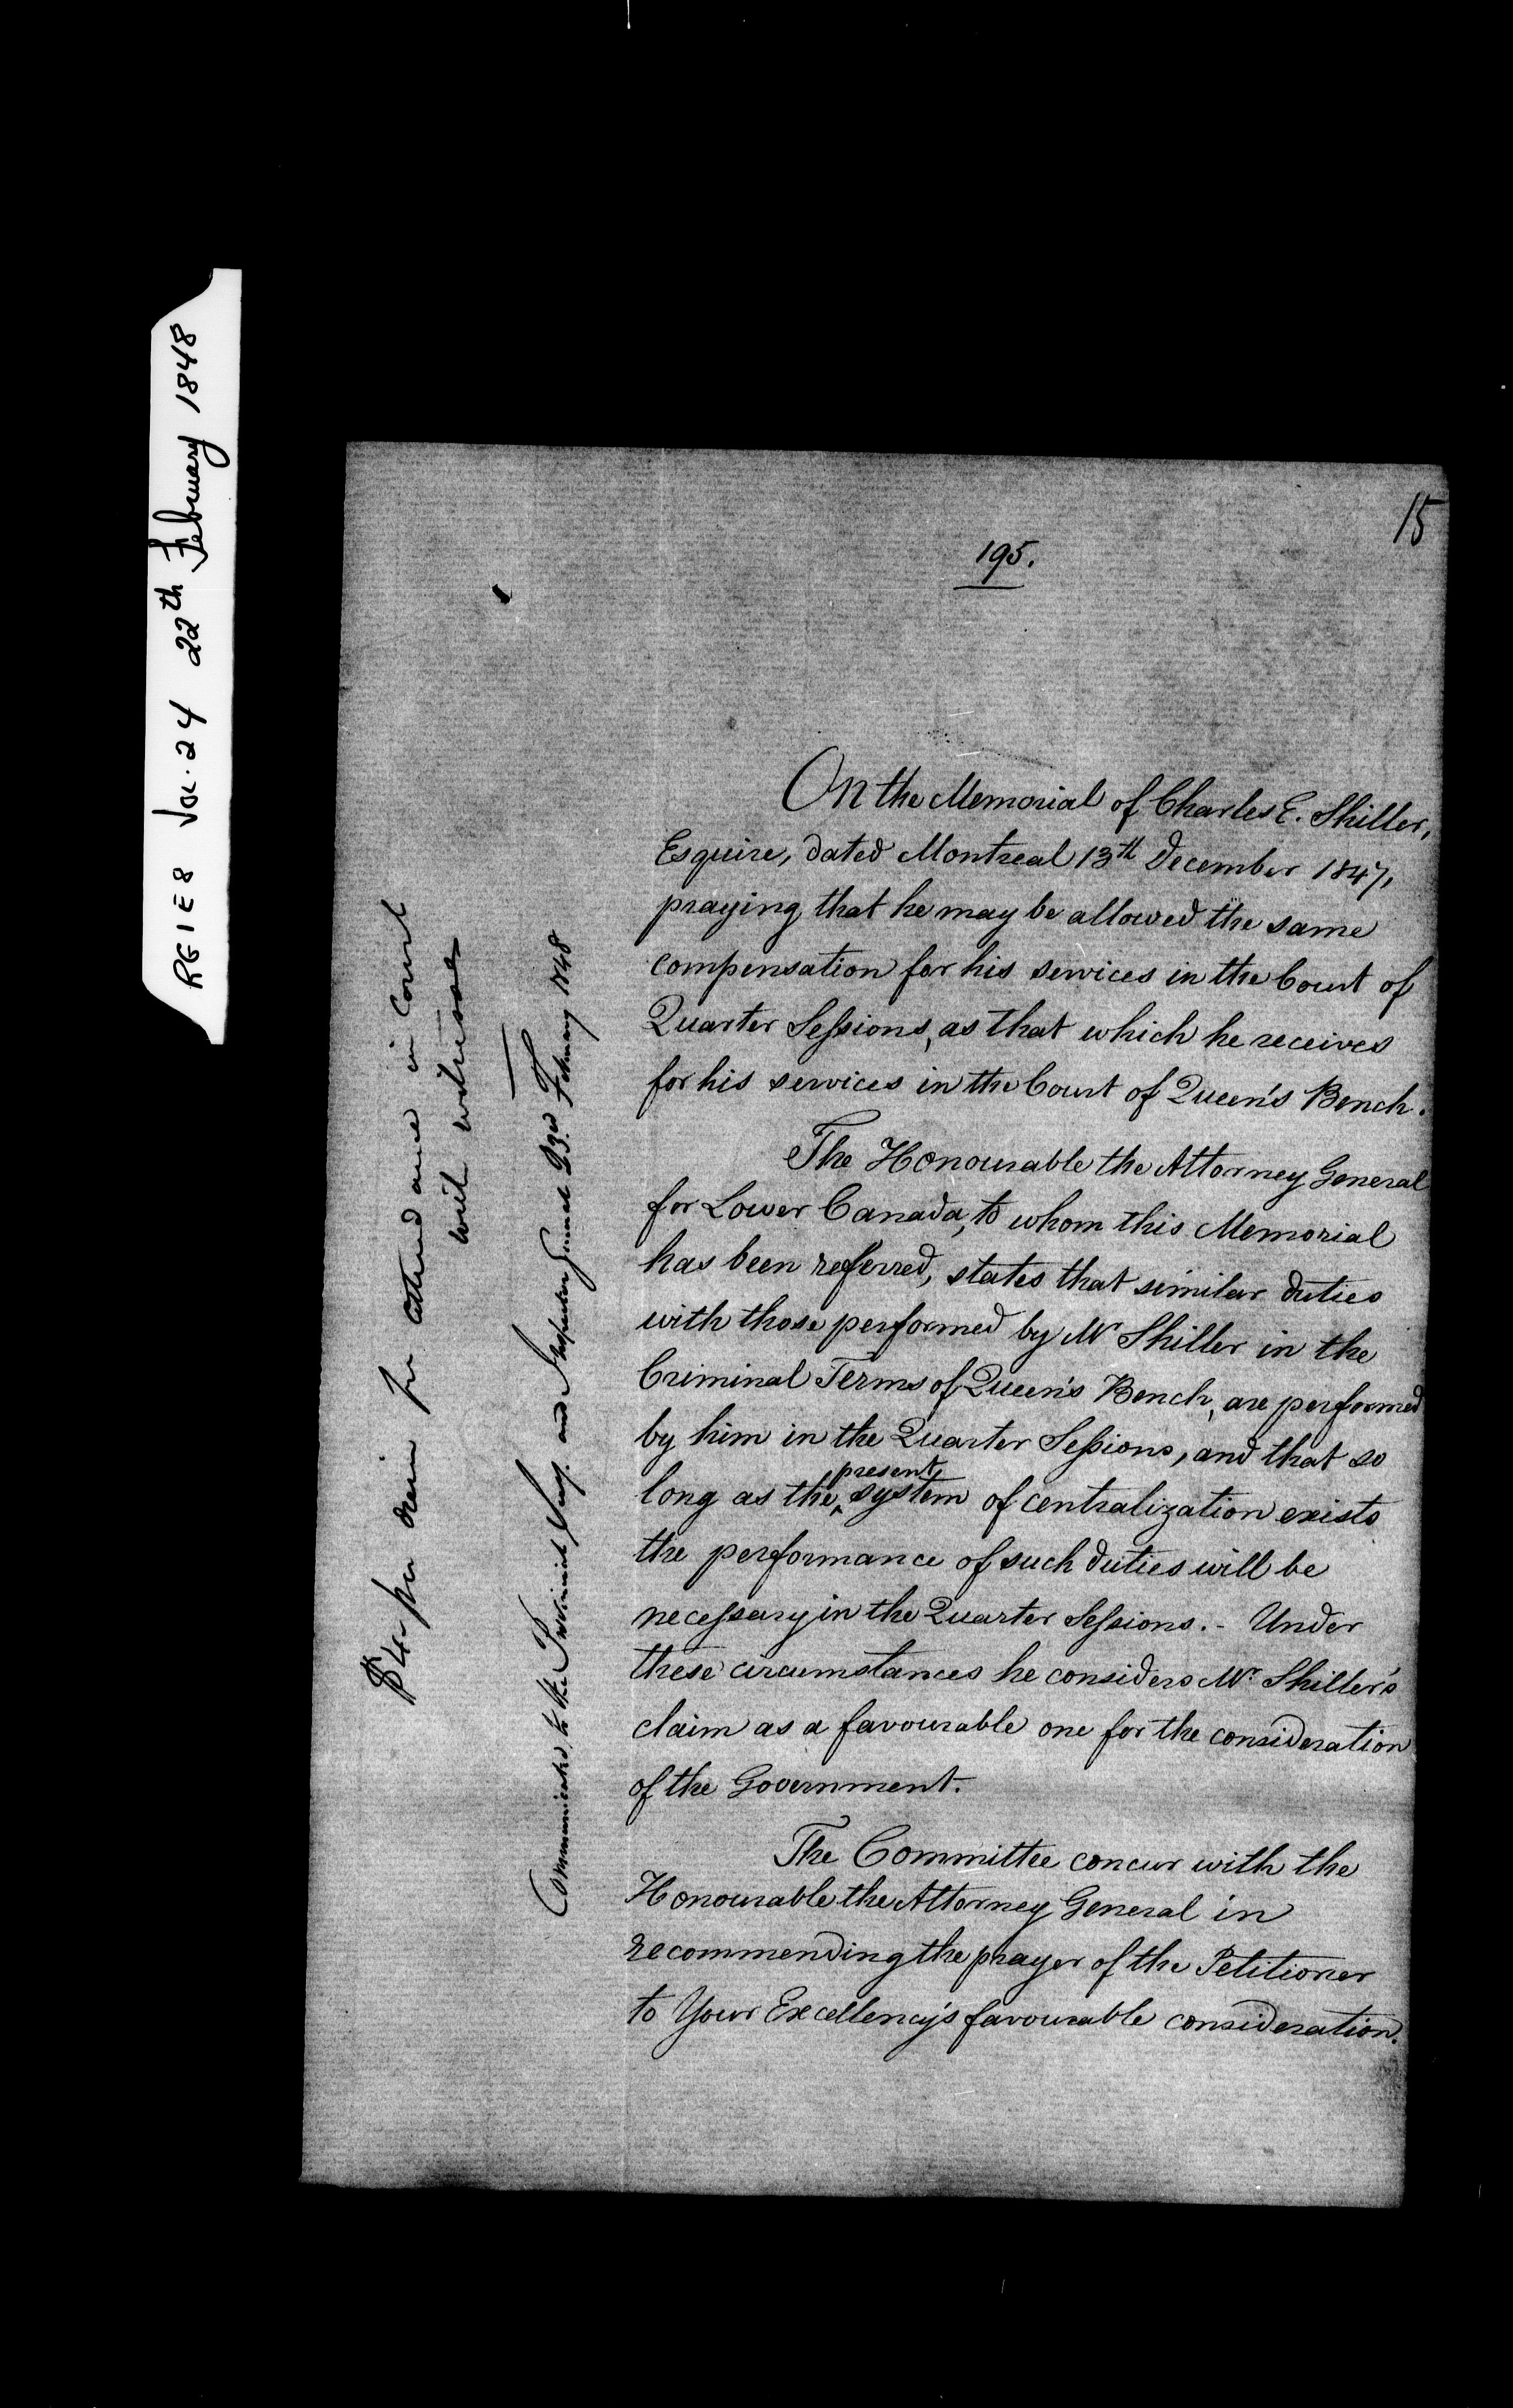 RG1E8 Vol. 24 22th February 1848
15
195.
On the Memorial of Charles E. Shiller,
Esquire, dated Montreal 13th December 1847,
praying that he may be allowed the same
compensation for his services in the Court of
Quarter Sessions, as that which he receives
for his services in the Court of Queen's Bench.
The Honourable the Attorney General
for Lower Canada, to whom this Memorial
has been referred, states that similar duties
with those performed by Mr Shiller in the
Criminal Terms of Queen's Bench, are performed
by him in the Quarter Sessions, and that so
long as the present system of centralization exists
the performance of such duties will be
necessary in the Quarter Sessions. - Under
these circumstances he considers Mr. Shiller's
claim as a favourable one for the consideration
of the Government.
The Committee concur with the
Honourable the Attorney General in
recommending the prayer of the Petitioner
to Your Excellency's favourable consideration.
$4 per diem for attendance in Court
with witnesses
Communicated to the Provincial Secy. and Inspector General 23rd February 1848